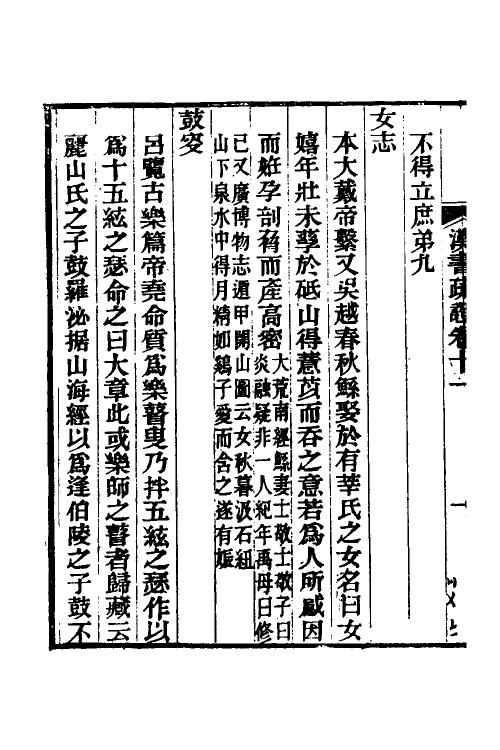 漢書疏證卷十
不得立庶弟九
女志
本大戴帝繫又吳越春秋鯀娶於有莘氏之女名曰女
嬉年壯未孳於砥山得薏苡而吞之意若爲人所感因
而姙孕剖脅而產高密大荒南經鯀妻士敬士敬子曰
炎融疑非一人紀年禹母曰修
己又廣博物志遁甲開山圖云女秋暮汲石紐
山下泉水中得月精如鷄子愛而含之遂有娠
鼓叜
呂覽古樂篇帝堯命質爲樂瞽叟乃拌五絃之瑟作以
爲十五絃之瑟命之曰大章此或樂師之瞽者歸藏云
麗山氏之子鼓羅泌据山海經以爲逢伯陵之子鼓不